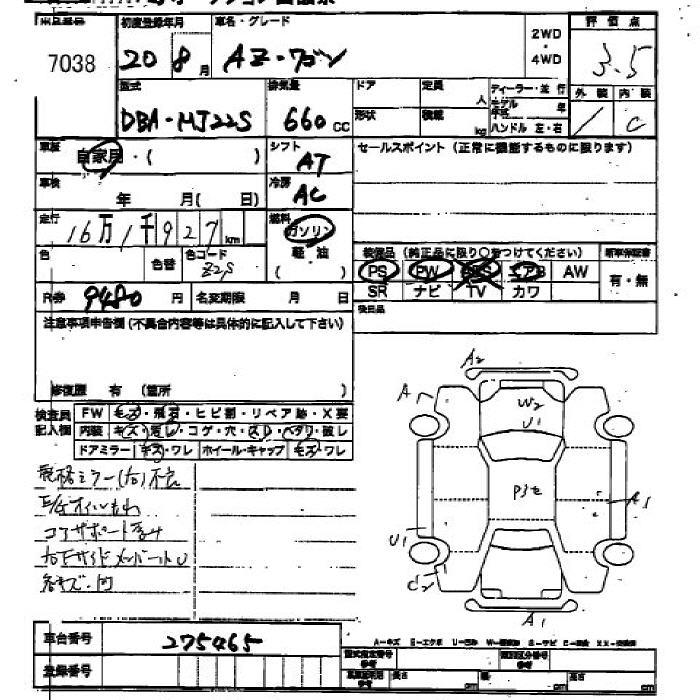 出品番号 初度登録年月 車名・グレード 2WD・4WD 評価点
7038 20 8月 AZ-ワゴン 3.5
型式 排気量 ドア 定員 人 ディーラー・並行 外装 内装
DBA-MJ22S 660 CC 形状 積載 kg モデル年式 年 ハンドル 左・右 / C
車歴 自家用・( ) シフト AT セールスポイント(正常に機能するものに限ります)
車検 年 月(日) 冷房 AC
走行 16万1千927km 燃料 ガソリン・軽油( )
色 色替 色コード Z2S 装備品(純正品に限り○をつけてください) 新車保証書
PS PW エアB AW 有・無
SR ナビ TV カワ
R券 9480円 名変期限 月 日 後日品
注意事項申告欄(不具合内容等は具体的に記入して下さい)
修復歴 有(箇所 )
検査員記入欄 FW キズ・飛石・ヒビ割・リペア跡・X要
内装 キズ・汚レ・コゲ・穴・スレ・ヘタリ・破レ
ドアミラー キズ・ワレ ホイール・キャップ キズ・ワレ
格納ミラー(右)不良
コアサポート
右Fサイドメンバー U
各キズ・凹
A2
A
W2
U1
P3
A1
U1
C2
A1
車台番号 275465
登録番号
A-キズ E-エクボ U-凹み S-サビ
型式指定番号 参考 類別区分番号 参考
長さ cm 幅 cm 高さ cm